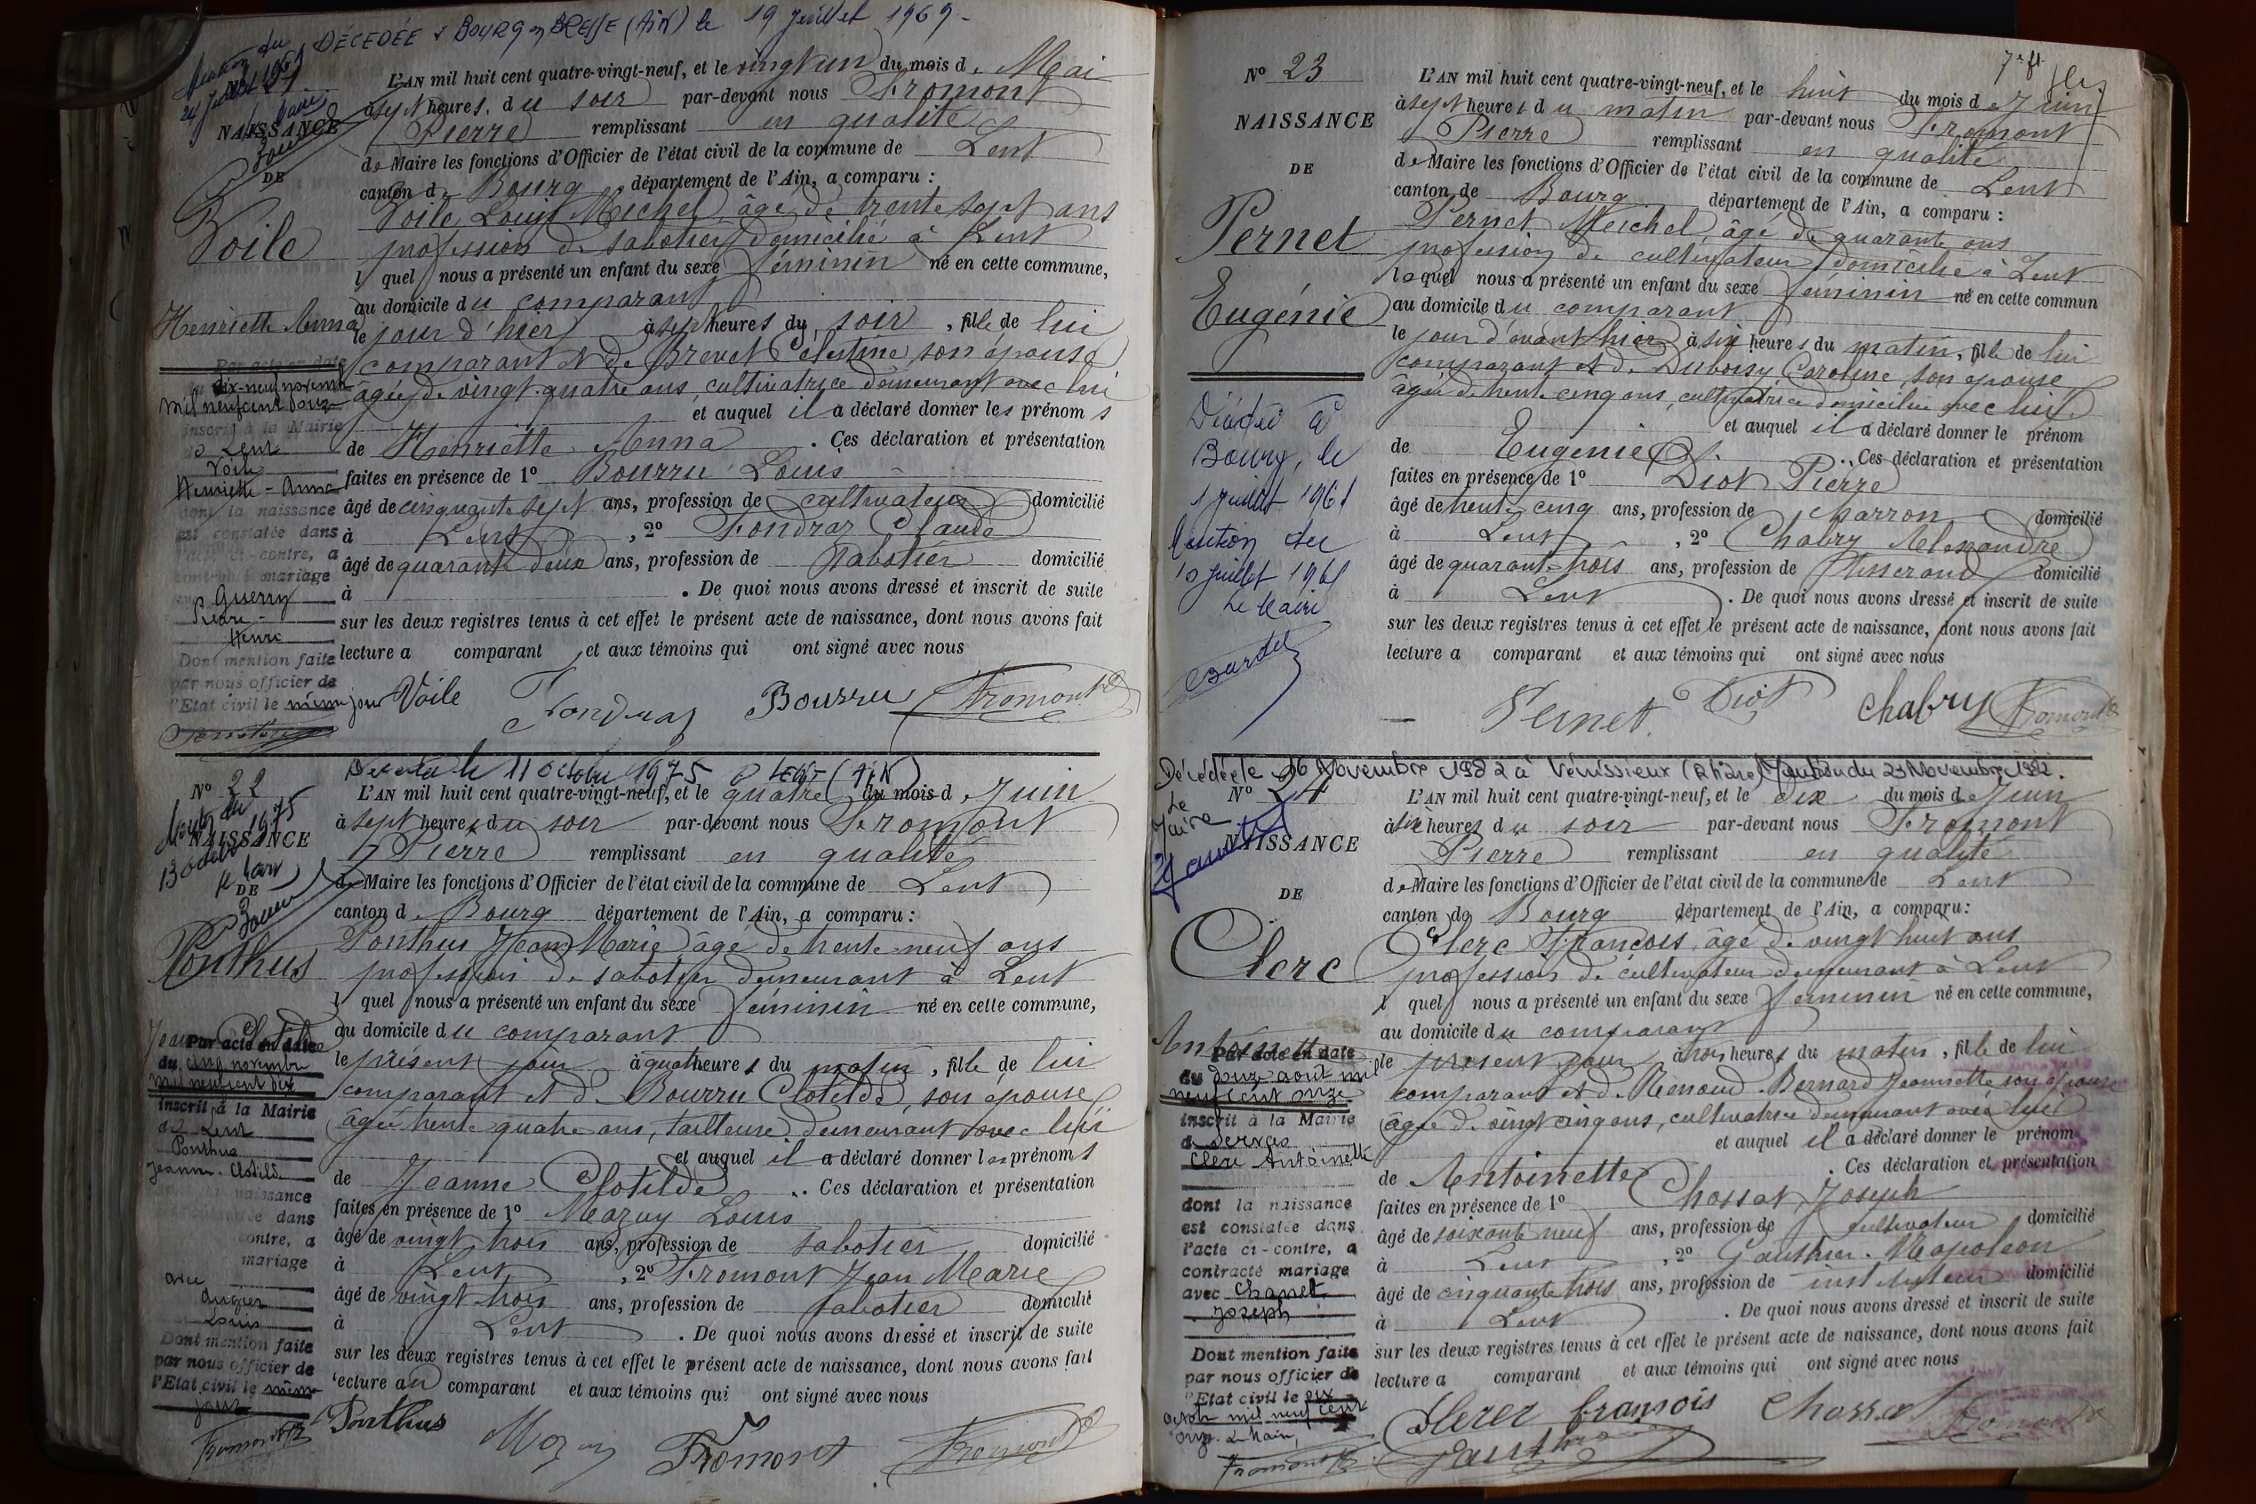 DÉCÉDÉE à BOURG en BRESSE (AIN) le 19 Juillet 1969.
Nº 21
NAISSANCE
DE
Voile
Henriette Anna
Par acte en date
du dix-neuf novembre
mil neuf cent douze
inscrit à la Mairie
de Lent
Voile
Henriette-Anna
dont la naissance
est constatée dans
l'acte ci-contre, a
contracté mariage
avec Guerry
Pierre-
Henri
Dont mention faite
par nous officier de
l'Etat civil le même jour
L'AN mil huit cent quatre-vingt-neuf, et le vingt un du mois de Mai
à sept heures du soir par-devant nous Fromont
Pierre remplissant en qualité
de Maire les fonctions d'Officier de l'état civil de la commune de Lent
canton de Bourg département de l'Ain, a comparu :
Voile Louis Michel, âgé de trente sept ans
profession de sabotier domicilié à Lent
lequel nous a présenté un enfant du sexe féminin né en cette commune,
au domicile du comparant
le jour d'hier à sept heures du soir, fille de lui
comparant et de Brevet Célestine son épouse
âgée de vingt-quatre ans, cultivatrice demeurant avec lui
et auquel il a déclaré donner les prénoms
de Henriette Anna. Ces déclaration et présentation
faites en présence de 1º Bourru Louis
âgé de cinquante sept ans, profession de cultivateur domicilié
à Lent, 2º Fondraz Claude
âgé de quarante deux ans, profession de Sabotier domicilié
à . De quoi nous avons dressé et inscrit de suite
sur les deux registres tenus à cet effet le présent acte de naissance, dont nous avons fait
lecture a comparant et aux témoins qui ont signé avec nous
Voile Fondraz Bourru Fromont
Décédée le 11 octobre 1975 à (AIN)
Nº 22
Mention du
13 octobre 1975
le Maire
NAISSANCE
DE
Ponthus
Jeanne Clotilde
Par acte en date
du cinq novembre
mil neuf cent dix
inscrit à la Mairie
de Lent
Ponthus
Jeanne-Clotilde
naissance
dans
contre, a
mariage
avec
Louis
Dont mention faite
par nous officier de
l'Etat civil le même
jour
Fromont
L'AN mil huit cent quatre-vingt-neuf, et le quatre du mois de Juin
à sept heures du soir par-devant nous Fromont
Pierre remplissant en qualité
de Maire les fonctions d'Officier de l'état civil de la commune de Lent
canton de Bourg département de l'Ain, a comparu :
Ponthus Jean Marie âgé de trente neuf ans
profession de sabotier demeurant à Lent
lequel nous a présenté un enfant du sexe féminin né en cette commune,
au domicile du comparant
le présent jour à quatre heures du matin, fille de lui
comparant et de Bourru Clotilde, son épouse
âgée trente quatre ans, tailleuse demeurant avec lui
et auquel il a déclaré donner les prénoms
de Jeanne Clotilde. Ces déclaration et présentation
faites en présence de 1º Mazuy Louis
âgé de vingt trois ans, profession de sabotier domicilié
à Lent, 2º Fromont Jean Marie
âgé de vingt trois ans, profession de sabotier domicilié
à Lent. De quoi nous avons dressé et inscrit de suite
sur les deux registres tenus à cet effet le présent acte de naissance, dont nous avons fait
lecture au comparant et aux témoins qui ont signé avec nous
Ponthus Mazuy Fromont Fromont
Nº 23
NAISSANCE
DE
Pernet
Eugénie
Décédée à
Bourg, le
1 juillet 1961
Mention du
10 juillet 1961
Le Maire
L'AN mil huit cent quatre-vingt-neuf, et le huit du mois de Juin
à sept heures du matin par-devant nous Fromont
Pierre remplissant en qualité
de Maire les fonctions d'Officier de l'état civil de la commune de Lent
canton de Bourg département de l'Ain, a comparu :
Pernet Michel, âgé de quarante ans
profession de cultivateur domicilié à Lent
lequel nous a présenté un enfant du sexe féminin né en cette commun
au domicile du comparant
le jour d'avant hier à six heures du matin, fille de lui
comparant et de Duboisy Caroline, son épouse
âgée de trente cinq ans, cultivatrice domiciliée avec lui
et auquel il a déclaré donner le prénom
de Eugénie. Ces déclaration et présentation
faites en présence de 1º Diot Pierre
âgé de trente cinq ans, profession de charron domicilié
à Lent, 2º Chabry Alexandre
âgé de quarante trois ans, profession de Tisserand domicilié
à Lent. De quoi nous avons dressé et inscrit de suite
sur les deux registres tenus à cet effet le présent acte de naissance, dont nous avons fait
lecture a comparant et aux témoins qui ont signé avec nous
Pernet Diot Chabry Fromont
Décédée le 16 Novembre 1982 à Vénissieux (Rhône) Mention du 23 Novembre 1982.
Le
Maire
Nº 24
NAISSANCE
DE
Clerc
Antoinette
Par acte en date
du douze août mil
neuf cent onze
inscrit à la Mairie
de Servas
Clerc Antoinette
dont la naissance
est constatée dans
l'acte ci-contre, a
contracté mariage
avec Chanel
Joseph
Dont mention faite
par nous officier de
l'Etat civil le dix
octobre mil neuf cent
onze. Le Maire,
Fromont
L'AN mil huit cent quatre-vingt-neuf, et le dix du mois de Juin
à six heures du soir par-devant nous Fromont
Pierre remplissant en qualité
de Maire les fonctions d'Officier de l'état civil de la commune de Lent
canton de Bourg département de l'Ain, a comparu :
Clerc François, âgé de vingt huit ans
profession de cultivateur demeurant à Lent
lequel nous a présenté un enfant du sexe féminin né en cette commune,
au domicile du comparant
le présent jour à trois heures du matin, fille de lui
comparant et de Renoud-Bernard Jeannette son épouse
âgée de vingt cinq ans, cultivatrice demeurant avec lui
et auquel il a déclaré donner le prénom
de Antoinette. Ces déclaration et présentation
faites en présence de 1º Chossat Joseph
âgé de soixante neuf ans, profession de cultivateur domicilié
à Lent, 2º Gauthier-Napoléon
âgé de cinquante trois ans, profession de instituteur domicilié
à Lent. De quoi nous avons dressé et inscrit de suite
sur les deux registres tenus à cet effet le présent acte de naissance, dont nous avons fait
lecture a comparant et aux témoins qui ont signé avec nous
Clerc fransois Chossat Fromont
Gauthier